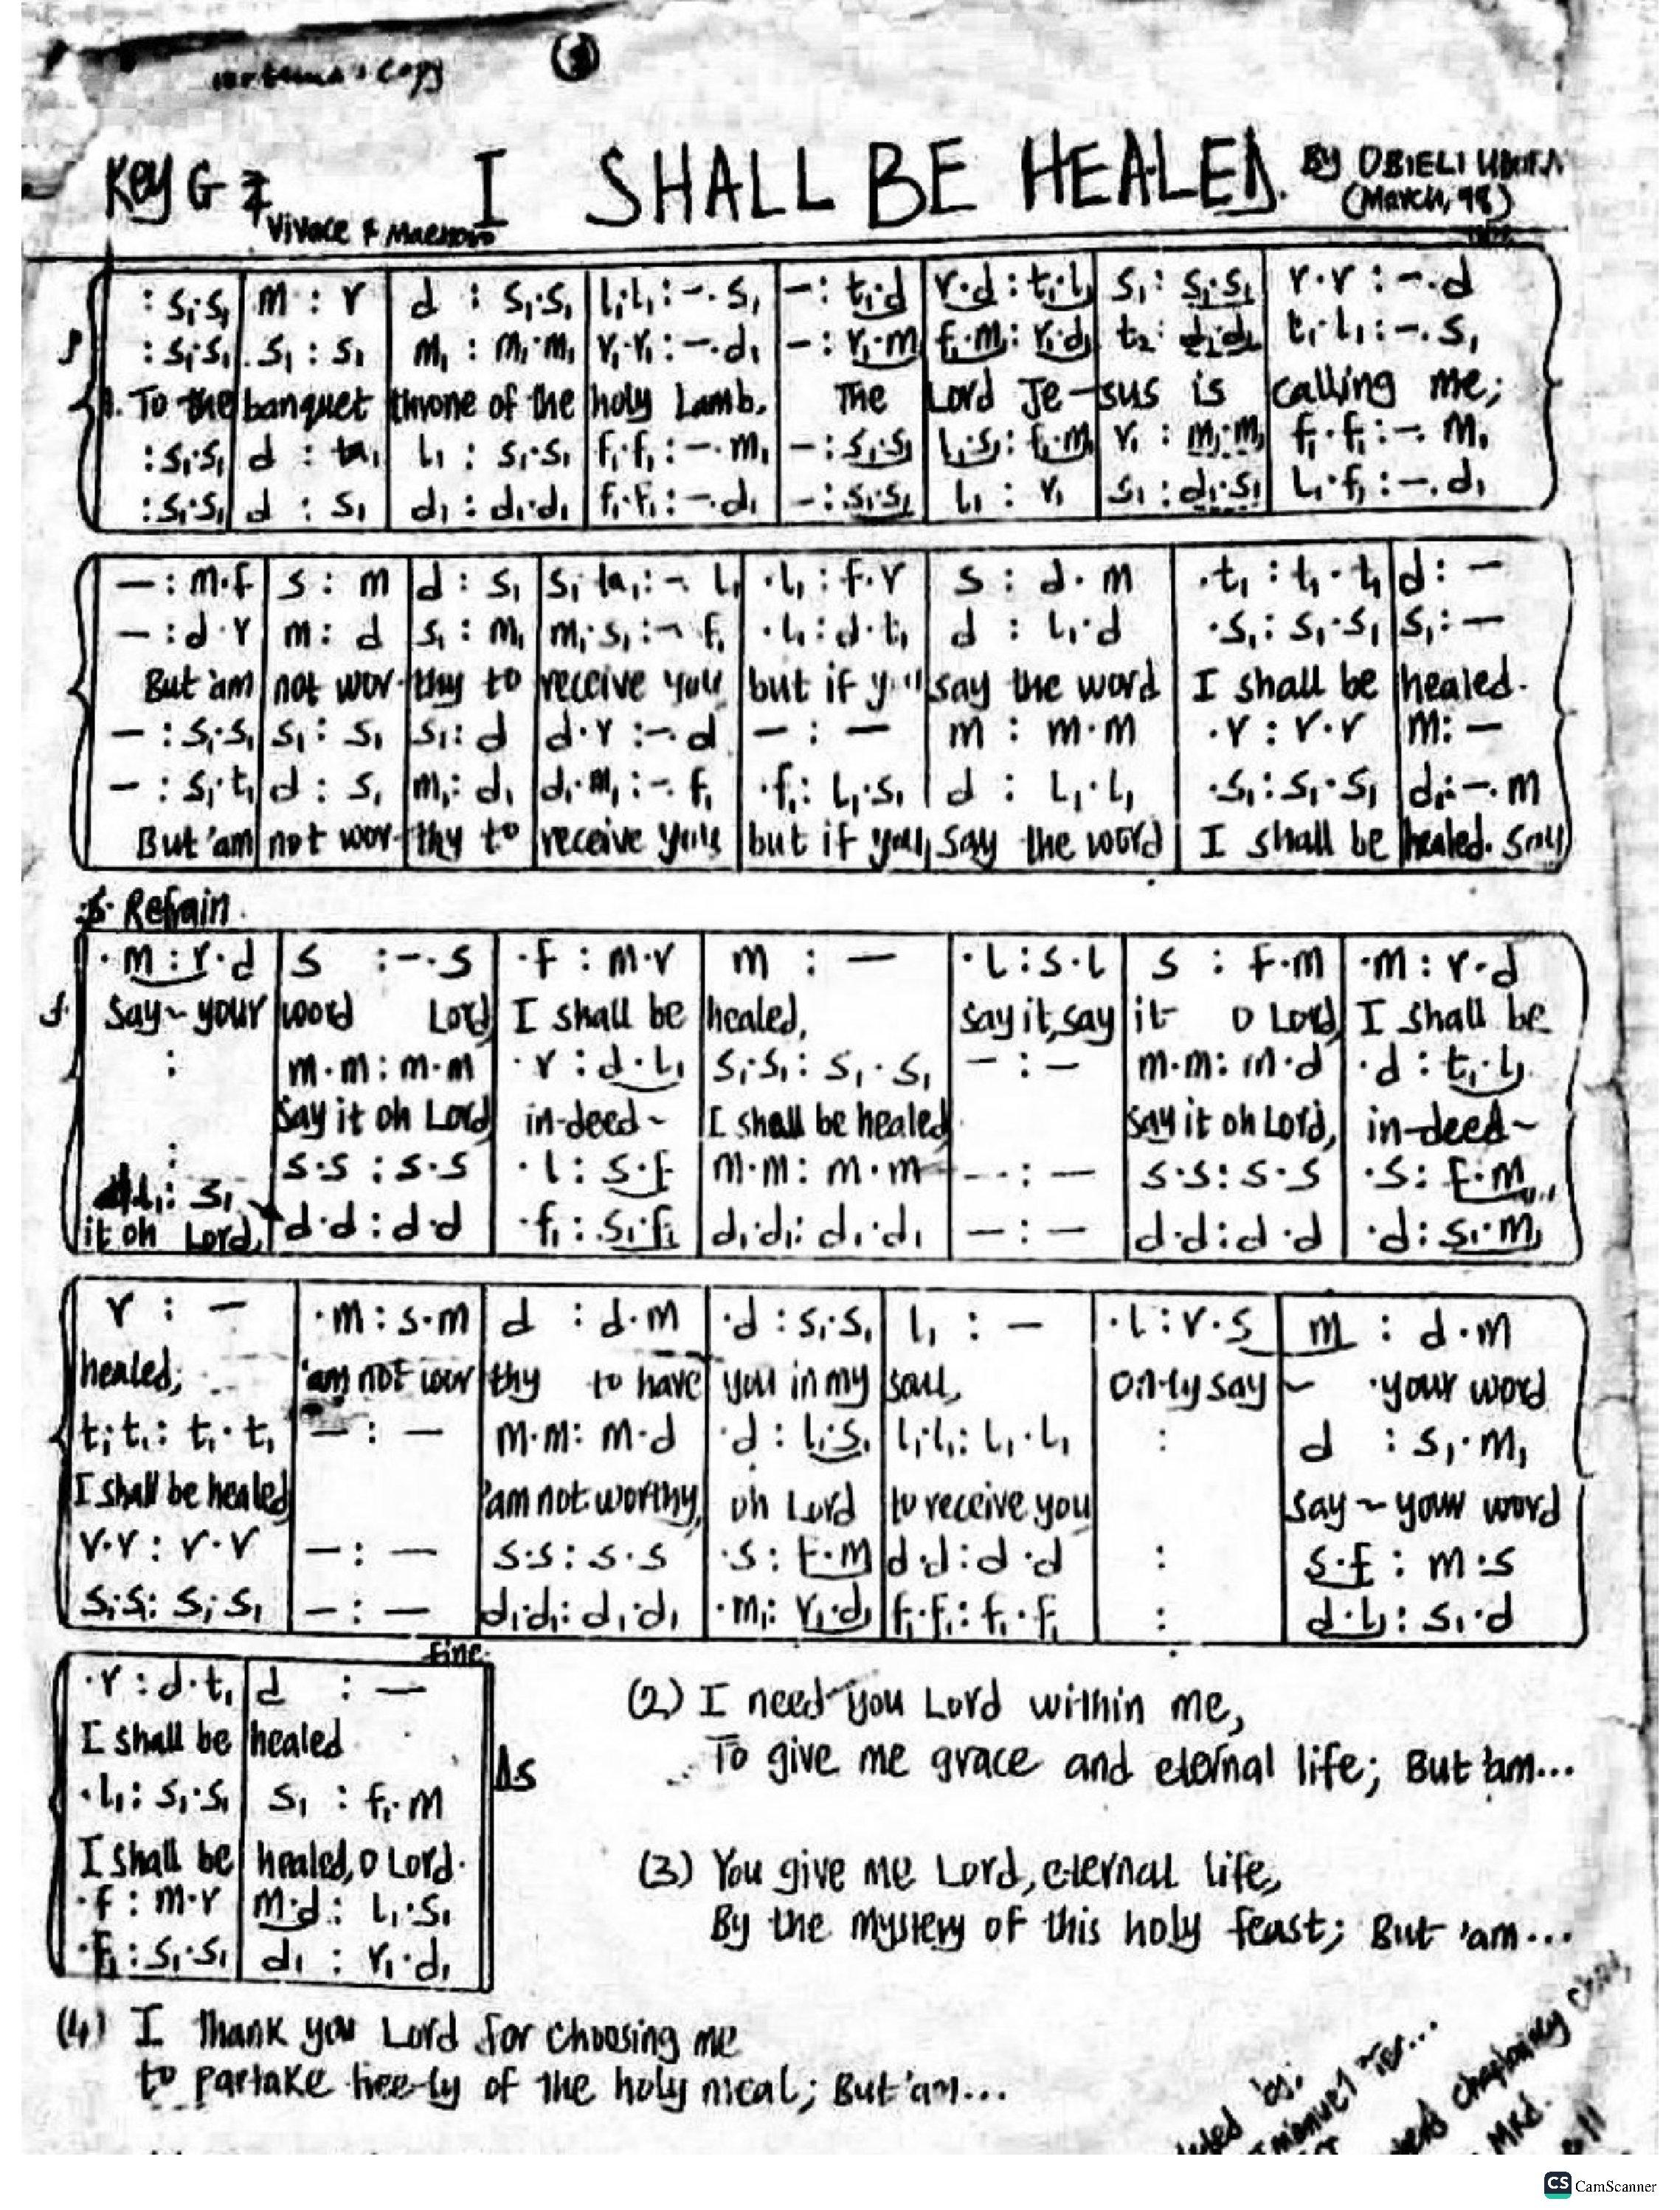 copy
Key G
I SHALL BE HEALED.
BY OBIELI
(March, 98)
Vivace & Maestoso
: s₁.s₁ | m : r | d : s₁.s₁ | l₁.l₁ : -. s₁ | - : t₁.d | r.d : t₁.l₁ | s₁ : s₁.s₁ | r.r : -.d
: s₁.s₁ | s₁ : s₁ | m₁ : m₁.m₁ | r₁.r₁ : -.d₁ | - : r₁.m₁ | f₁.m₁ : r₁.d₁ | t₂ : d₁.d₁ | t₁.l₁ : -. s₁
1. To the banquet throne of the holy Lamb, The Lord Je-sus is calling me;
: s₁.s₁ | d : ta₁ | l₁ : s₁.s₁ | f₁.f₁ : -. m₁ | - : s₁.s₁ | l₁.s₁ : f₁.m₁ | r₁ : m₁.m₁ | f₁.f₁ : -. m₁
: s₁.s₁ | d : s₁ | d₁ : d₁.d₁ | f₁.f₁ : -.d₁ | - : s₁.s₁ | l₁ : r₁ | s₁ : d₁.s₁ | l₁.f₁ : -. d₁
- : m.f | s : m | d : s₁ | s₁.ta₁ : -. l₁ | .l₁ : f.r | s : d.m | .t₁ : t₁.t₁ | d : -
- : d.r | m : d | s₁ : m₁ | m₁.s₁ : -. f₁ | .l₁ : d.t₁ | d : l₁.d | .s₁ : s₁.s₁ | s₁ : -
But 'am not wor-thy to receive you but if say the word I shall be healed.
- : s₁.s₁ | s₁ : s₁ | s₁ : d | d.r : -. d | - : - | m : m.m | .r : r.r | m : -
- : s₁.t₁ | d : s₁ | m₁ : d₁ | d₁.m₁ : -. f₁ | .f₁ : l₁.s₁ | d : l₁.l₁ | .s₁ : s₁.s₁ | d₁ : -. m
But 'am not wor-thy to receive you but if you say the word I shall be healed. Say
Refrain.
.m : r.d | s : -. s | .f : m.r | m : - | .l : s.l | s : f.m | .m : r.d
f. Say~ your word Lord I shall be healed, say it, say it O Lord, I shall be
: | m.m : m.m | .r : d.l₁ | s₁.s₁ : s₁.s₁ | - : - | m.m : m.d | .d : t₁.l₁
Say it oh Lord in-deed~ I shall be healed say it oh Lord, in-deed~
: | s.s : s.s | .l : s.f | m.m : m.m | - : - | s.s : s.s | .s : f.m
l₁ : s₁ | d.d : d.d | .f₁ : s₁.f₁ | d₁.d₁ : d₁.d₁ | - : - | d.d : d.d | .d : s₁.m₁
it oh Lord,
r : - | .m : s.m | d : d.m | .d : s₁.s₁ | l₁ : - | .l : r.s | m : d.m
healed; 'am not wor thy to have you in my soul, on-ly say ~ your word
t₁.t₁ : t₁.t₁ | - : - | m.m : m.d | .d : l₁.s₁ | l₁.l₁ : l₁.l₁ | : | d : s₁.m₁
I shall be healed 'am not worthy, oh Lord to receive you say ~ your word
r.r : r.r | - : - | s.s : s.s | .s : f.m | d.d : d.d | : | s.f : m.s
s₁.s₁ : s₁.s₁ | - : - | d₁.d₁ : d₁.d₁ | .m₁ : r₁.d₁ | f₁.f₁ : f₁.f₁ | : | d.l₁ : s₁.d
Fine.
.r : d.t₁ | d : -
I shall be healed
.l₁ : s₁.s₁ | s₁ : f₁.m
I shall be healed, O Lord.
.f : m.r | m.d : l₁.s₁
.f₁ : s₁.s₁ | d₁ : r₁.d₁
(2) I need you Lord within me,
To give me grace and eternal life; But 'am...
(3) You give me Lord, eternal life,
By the mystery of this holy feast; But 'am...
(4) I thank you Lord for choosing me
to partake free-ly of the holy meal; But 'am...
CS CamScanner